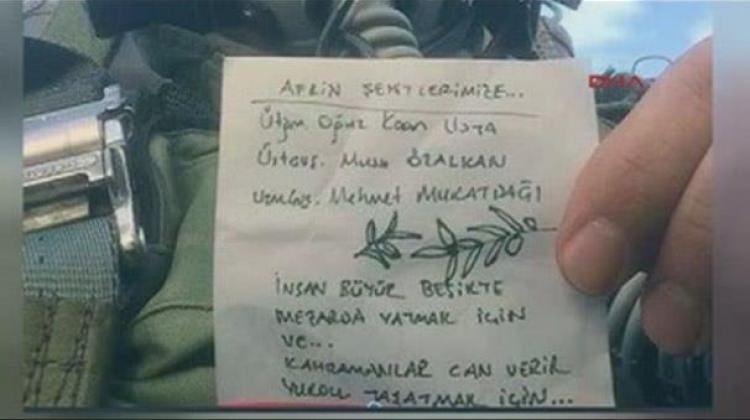 AFRİN ŞEHİTLERİMİZE...
Ütğm Oğuz Kaan Usta
Üstçvş. Musa ÖZALKAN
Uzmçvş. Mehmet MURATDAĞI
İNSAN BÜYÜR BEŞİKTE
MEZARDA YATMAK İÇİN
VE...
KAHRAMANLAR CAN VERİR
YURDU YAŞATMAK İÇİN...
DHA